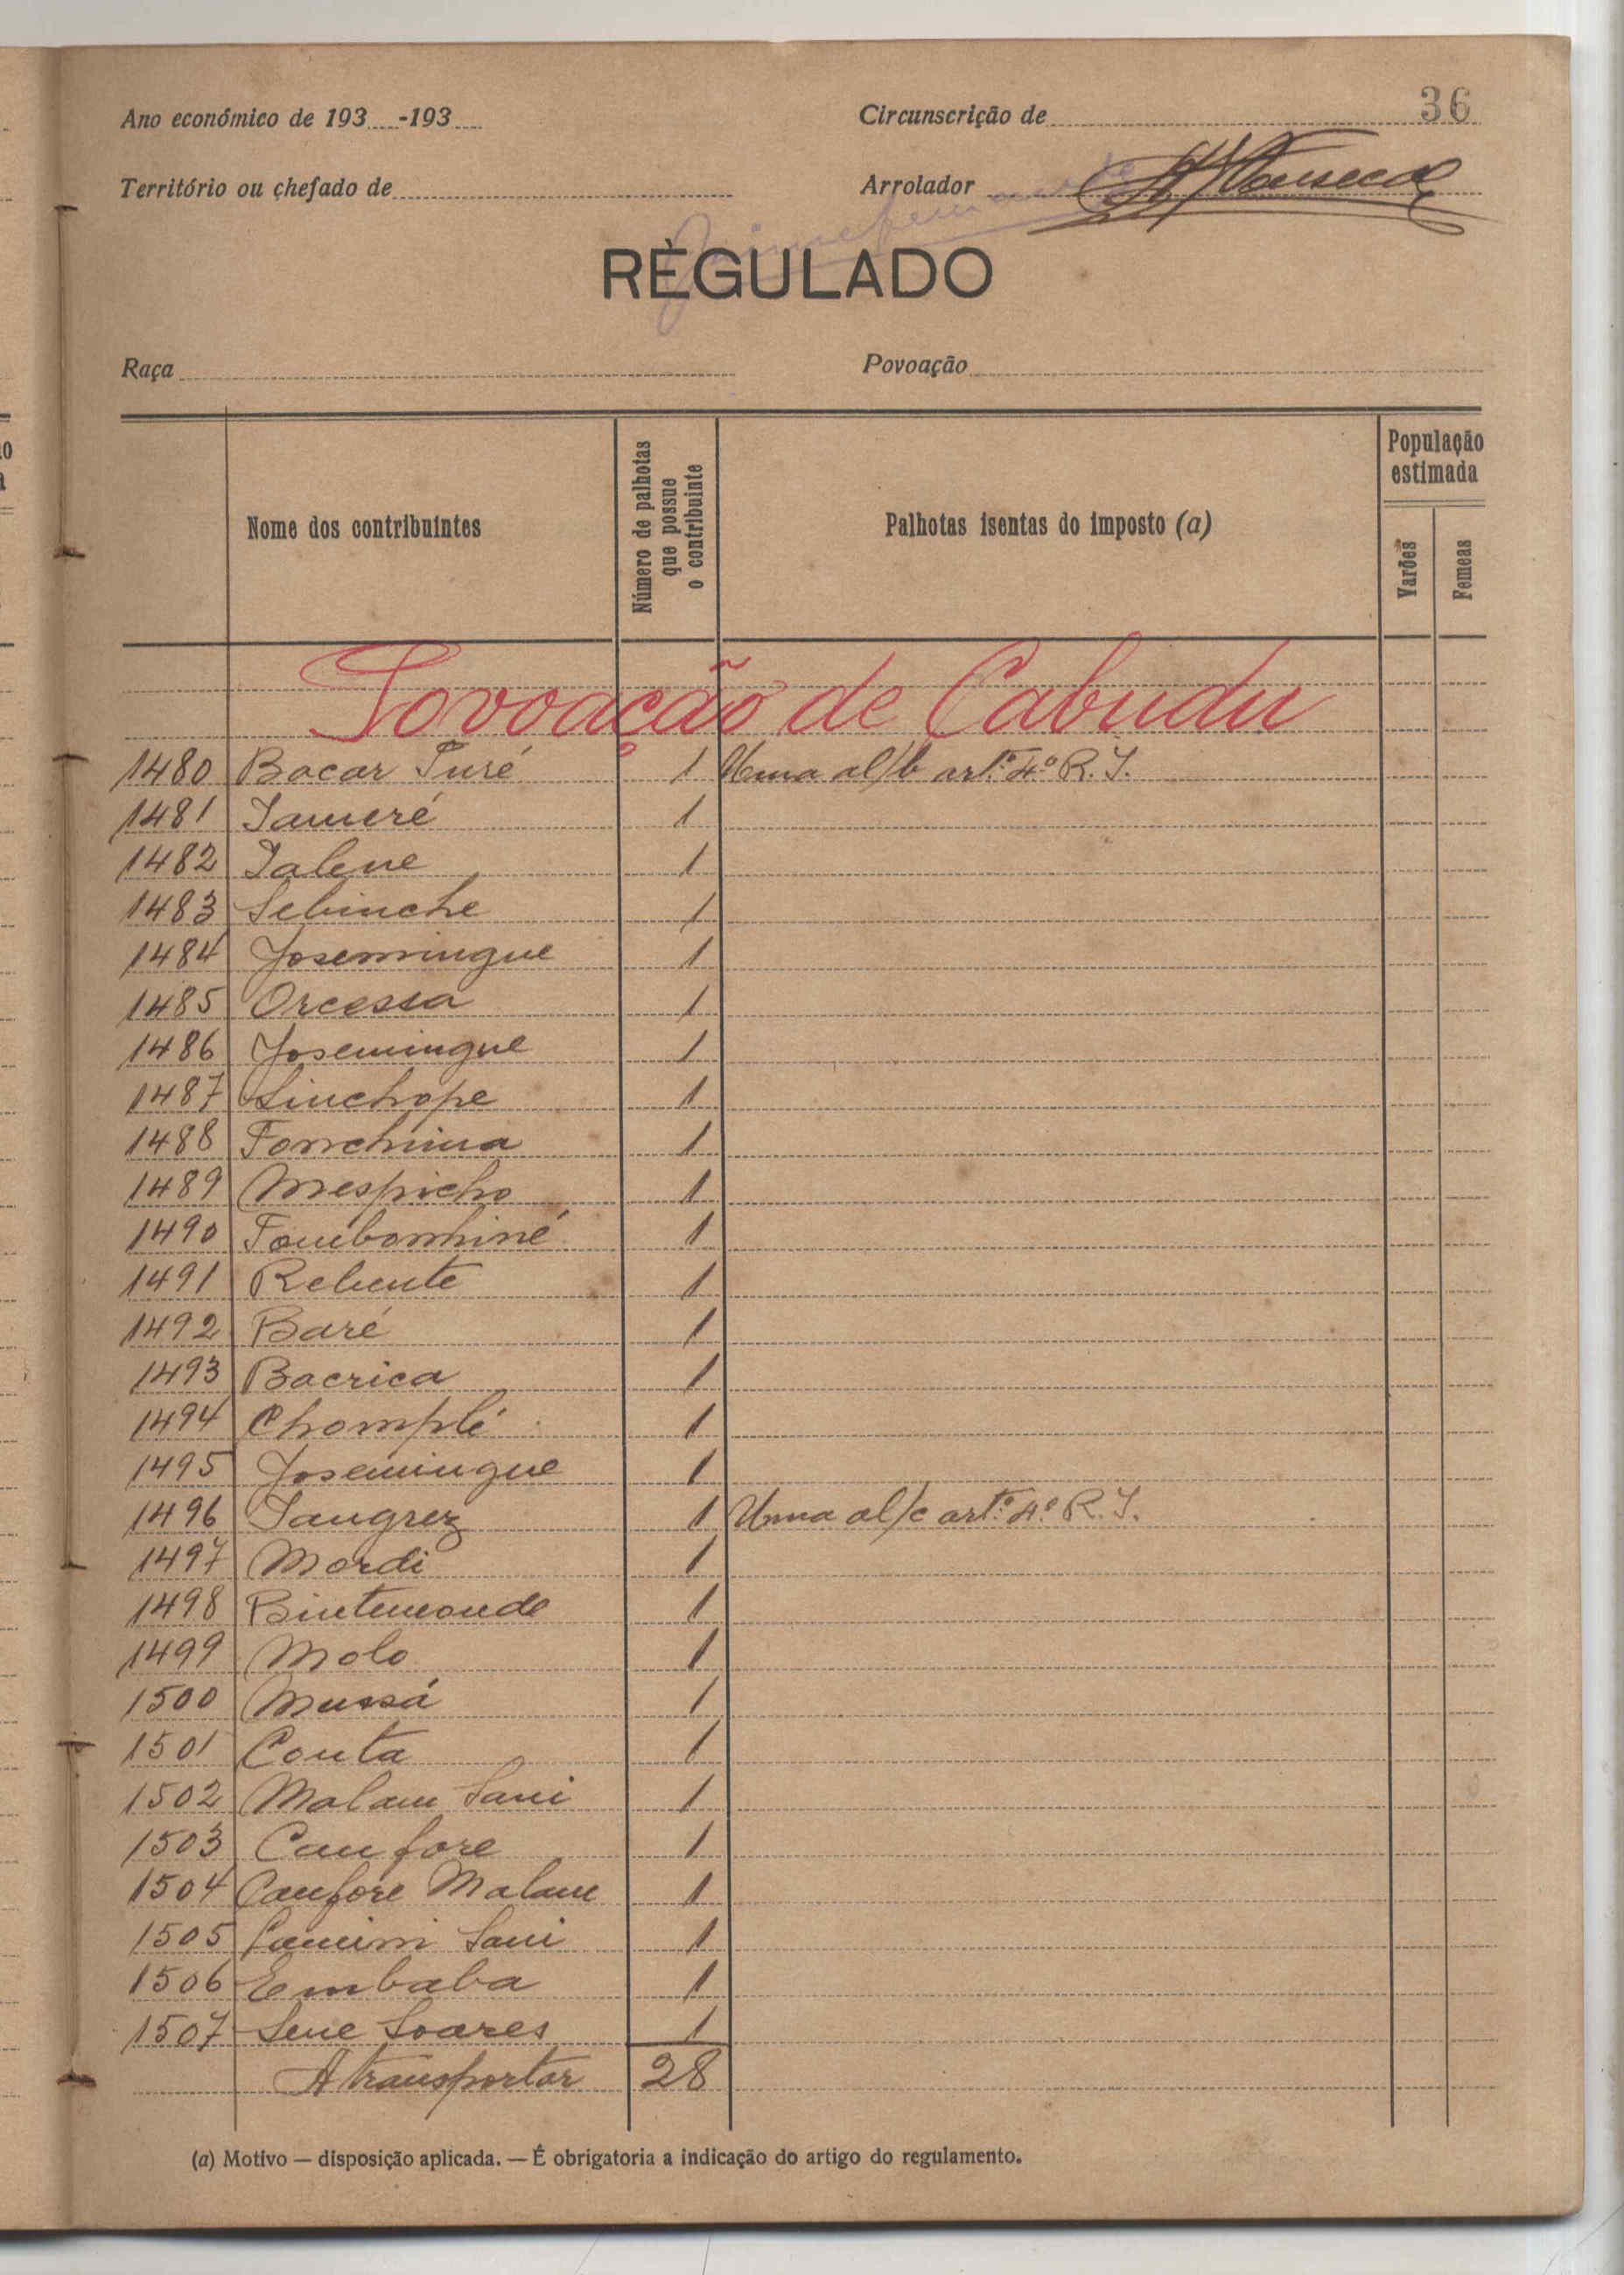 36
Ano económico de 193 -193 Circunscrição de
Território ou chefado de Arrolador Fonseca
RÈGULADO
Raça Povoação
Nome dos contribuintes Número de palhotas que possue o contribuinte Palhotas isentas do imposto (a) População estimada Varões Femeas
Povoação de Cabudu
1480 Bacar Turé 1 Uma al/b art.º 4.º R. I.
1481 Iameré 1
1482 Ialene 1
1483 Sebinche 1
1484 Josemingue 1
1485 Orcessa 1
1486 Josemingue 1
1487 Sinchope 1
1488 Fonchina 1
1489 Mespicho 1
1490 Fombomhiné 1
1491 Rebente 1
1492 Baré 1
1493 Bacrica 1
1494 Chomplé 1
1495 Josemingue 1
1496 Sangrez 1 Uma al/c art.º 4.º R. I.
1497 Mordi 1
1498 Bintemonde 1
1499 Molo 1
1500 Mussá 1
1501 Conta 1
1502 Malam Sani 1
1503 Canfore 1
1504 Canfore Malam 1
1505 Sani 1
1506 Embaba 1
1507 Sene Soares 1
A transportar 28
(a) Motivo — disposição aplicada. — É obrigatoria a indicação do artigo do regulamento.